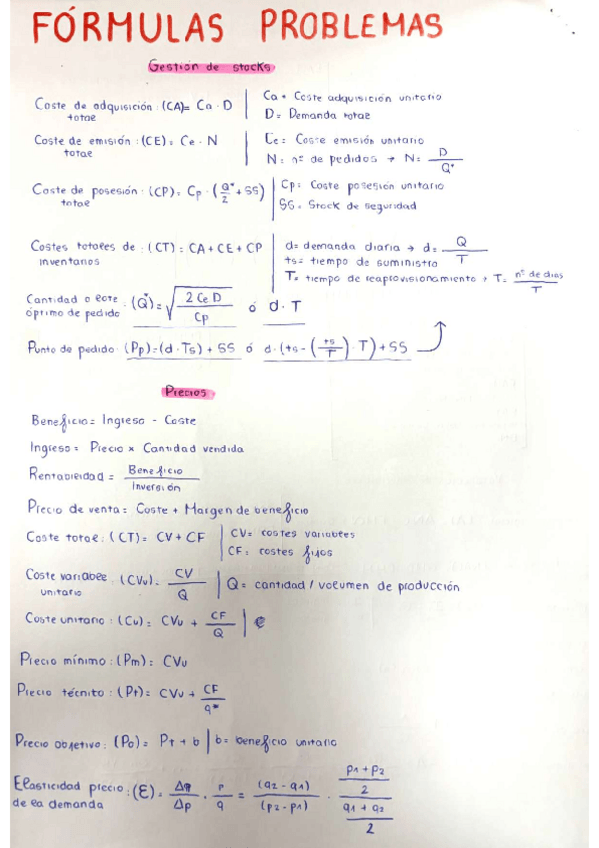 FÓRMULAS PROBLEMAS
Gestión de stocks
Coste de adquisición : (CA) = Ca · D
total
Ca = Coste adquisición unitario
D = Demanda total
Coste de emisión : (CE) = Ce · N
total
Ce = Coste emisión unitario
N = nº de pedidos → N = D / Q*
Coste de posesión : (CP) = Cp · (Q*/2 + SS)
total
Cp = Coste posesión unitario
SS = Stock de seguridad
Costes totales de : (CT) = CA + CE + CP
inventarios
d = demanda diaria → d = Q / T
ts = tiempo de suministro
T = tiempo de reaprovisionamiento → T = nº de dias / T
Cantidad o lote
óptimo de pedido : (Q*) = √(2 Ce D / Cp) ó d · T
Punto de pedido : (Pp) = (d · Ts) + SS ó d · (ts - (ts/T) · T) + SS
Precios
Beneficio = Ingreso - Coste
Ingreso = Precio x Cantidad vendida
Rentabilidad = Beneficio / Inversión
Precio de venta = Coste + Margen de beneficio
Coste total : (CT) = CV + CF
CV = costes variables
CF = costes fijos
Coste variable : (CVu) = CV / Q
unitario
Q = cantidad / volumen de producción
Coste unitario : (Cu) = CVu + CF / Q
Precio mínimo : (Pm) = CVu
Precio técnito : (Pt) = CVu + CF / q*
Precio objetivo : (Po) = Pt + b | b = beneficio unitario
Elasticidad precio : (E) = Δq / Δp · p / q = (q2 - q1) / (p2 - p1) · ((p1 + p2) / 2) / ((q1 + q2) / 2)
de la demanda